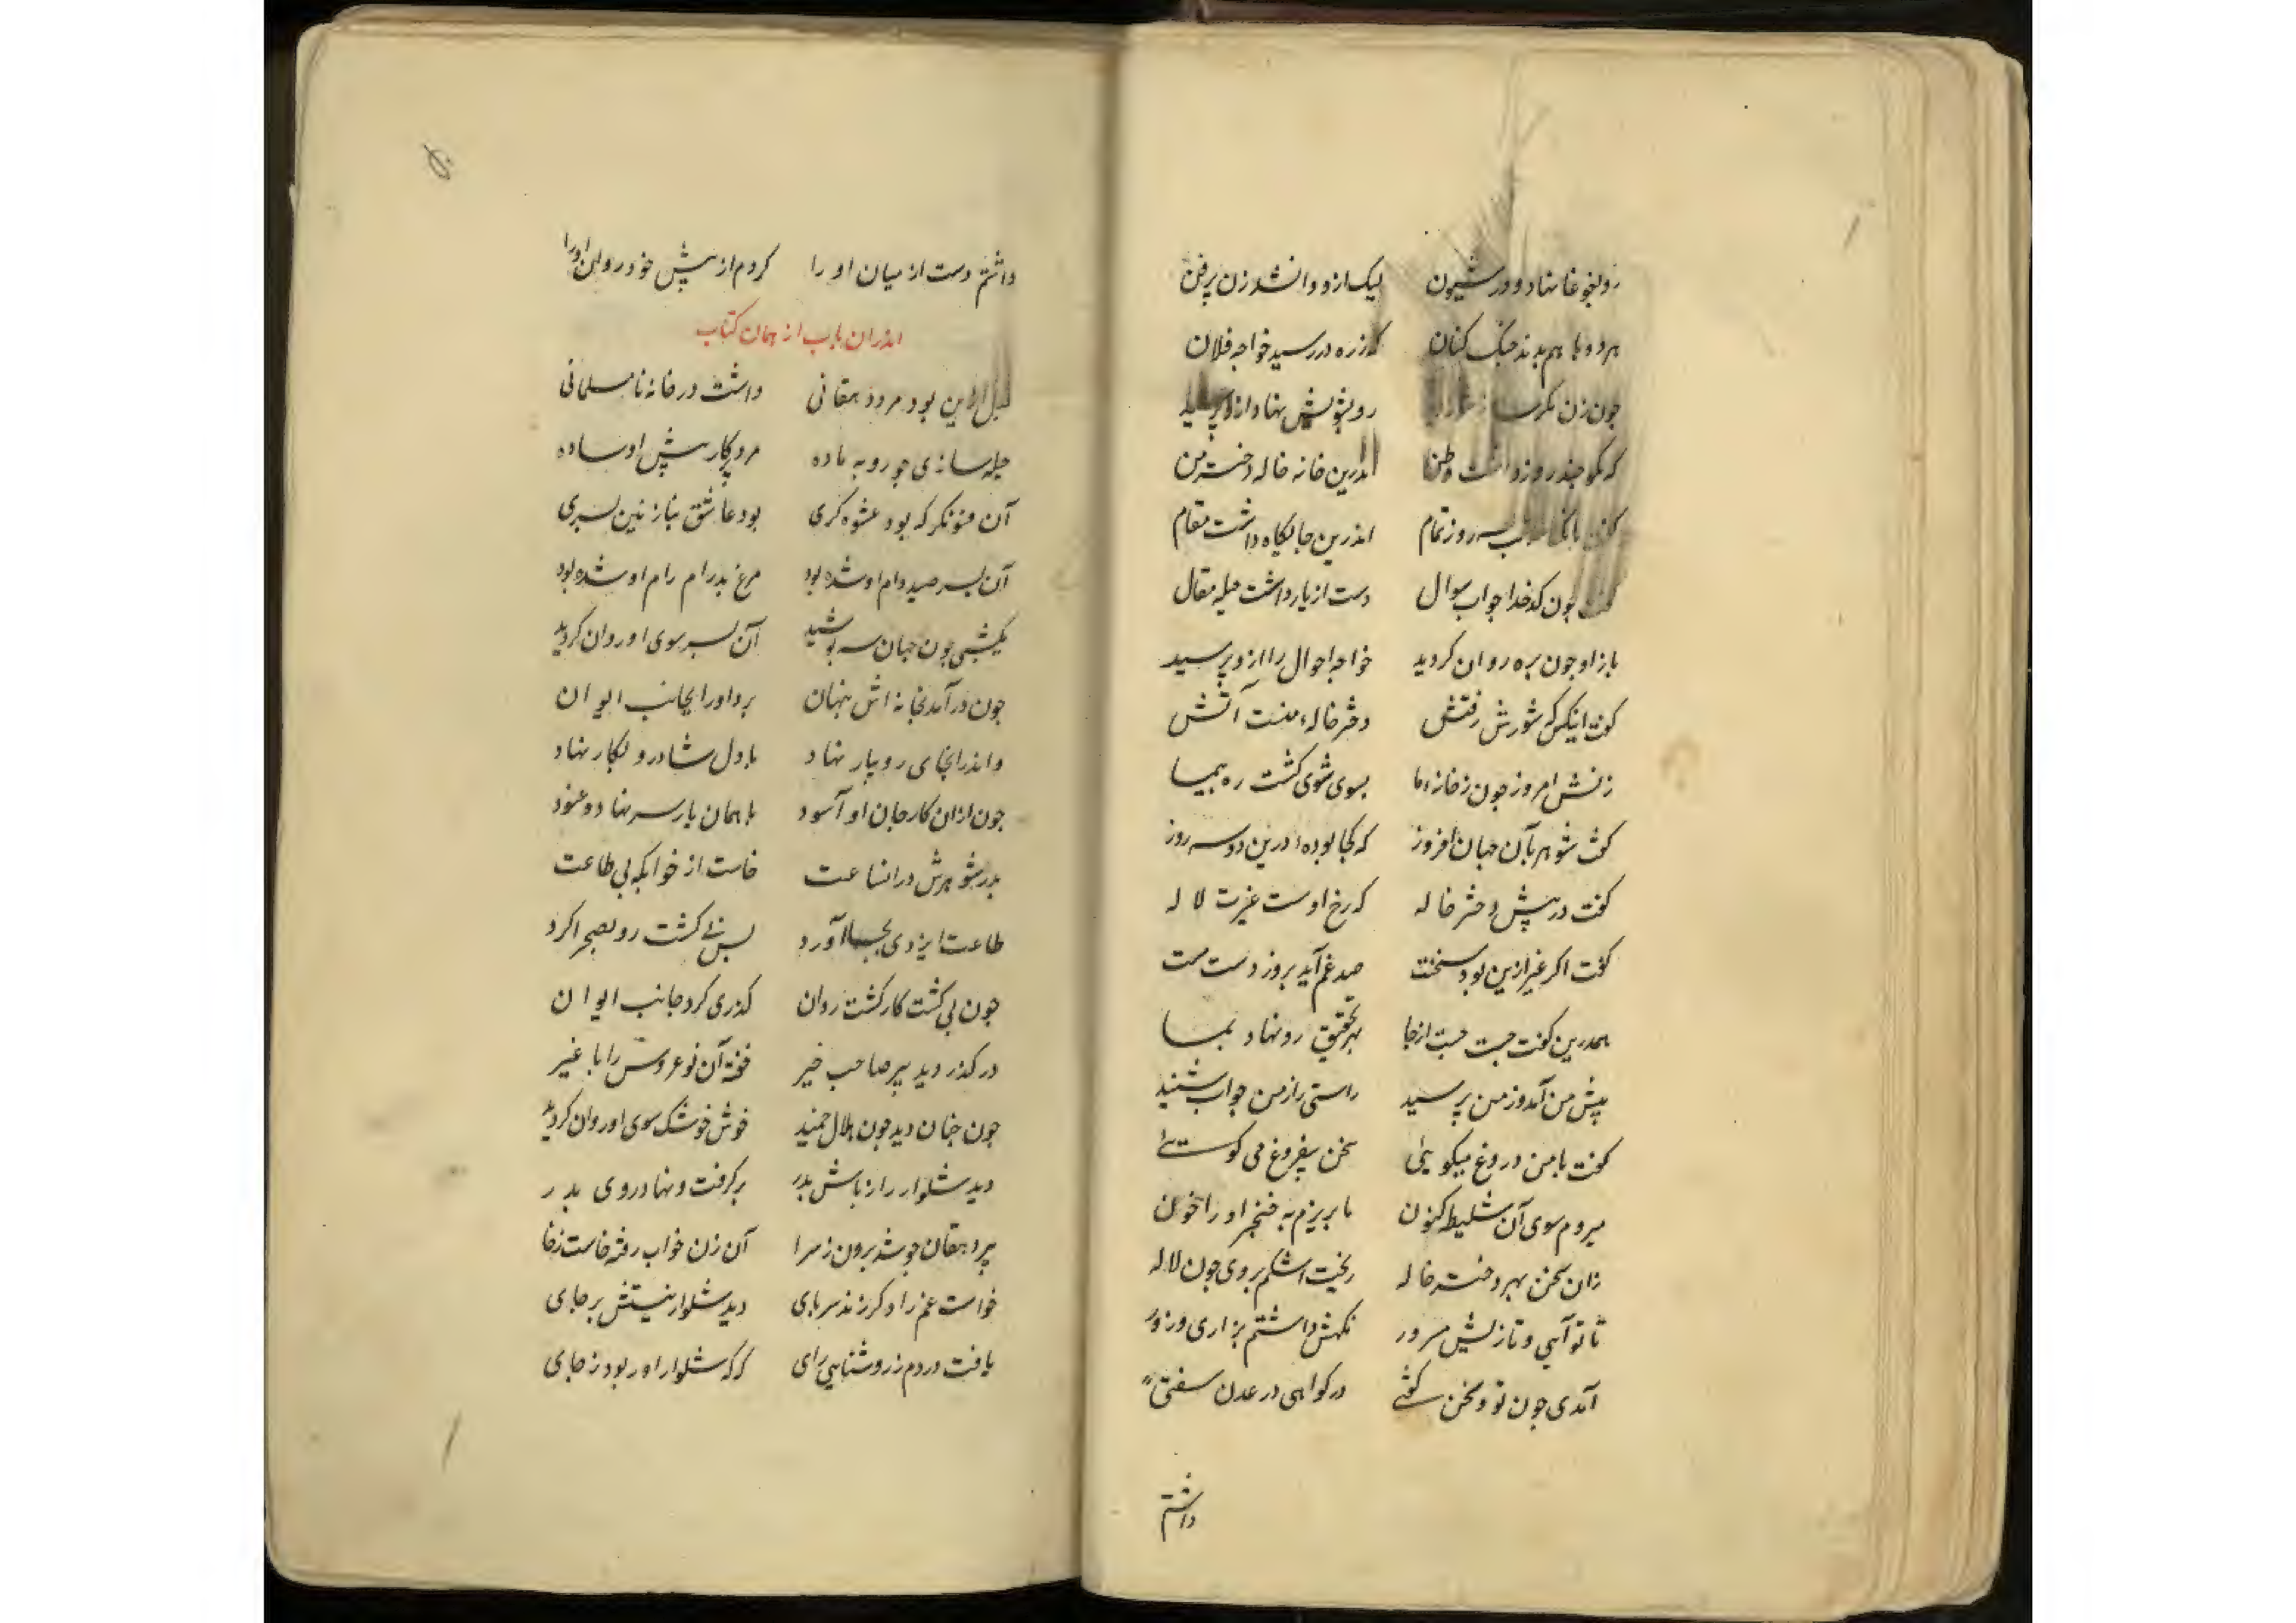 رو بغوغا نهاد و در شیون لیک ازو وا نشد زن پر فن
هر دو با هم بدند جنک کنان که ز ره در رسید خواجه فلان
جون زن رو بشویش نهاد
که نکو جند روز داشت وطن اندرین خانه خاله دخت من
سه روز تمام اندرین جایکاه داشت مقام
جون کدخدا جواب سوال دست از یار داشت حیله مقال
باز او جون بره روان کردید خواجه احوال را ازو پرسید
کفت اینکس که شورش رفتش دختر خاله منست آتش
زنش امروز جون ز خانه ما بسوی شوی کشت ره پیما
کفت شوهر بآن جهان افروز که کجا بوده درین دو سه روز
کفت در پیش دختر خاله که رخ اوست غیرت لاله
کفت اکر غیر ازین بود سخنت صد غم آید بروز دست منت
همدرین کفت جست جست از جا بهر تحقیق رو نهاد بما
پیش من آمد و ز من پرسید راستی را ز من جواب شنید
کفت با من دروغ میکویی سخن بیفروغ می کویی
میروم سوی آن شلیطه کنون تا بریزم به خنجر او را خون
زان سخن بهر دخت خاله ریخت اشکم بروی جون لاله
تا تو آیی و تازیش مرور نکهش داشتم بزاری و زور
آمدی جون تو و سخن کفتی در کواهی در عدن سفتی
داشتم
داشتم دست از میان او را کردم از پیش خود روان او را
اندران باب از همان کتاب
قبل ازین بود مرد دهقانی داشت در خانه نامسلمانی
حیله سازی جو روبه ماده مرد پرکار پیش او ساده
آن فسونکر که بود عشوه کری بود عاشق بنازنین پسری
آن پسر صید دام او شده بود مرغ پدرام رام او شده بود
یکشبی جون جهان سیه پوشید آن پسر سوی او روان کردید
جون در آمد بخانه اش پنهان برد او را بجانب ایوان
و اندر انجای رو بیار نهاد با دل شاد رو بکار نهاد
جون ازان کار جان او آسود با همان یار سر نهاد و غنود
پدر شوهرش در انساعت خاست از خوابکه پی طاعت
طاعت ایزدی بجا آورد پس پی کشت رو بصحرا کرد
جون پی کشت کار کشت روان کذری کرد جانب ایوان
در کذر دید پیر صاحب خیر خفته آن نو عروس را با غیر
جون جنان دید جون هلال خمید خوش خوشک سوی او روان کردید
دید شلوار را ز پاش بدر برکرفت و نهاد روی بدر
پیر دهقان جو شد برون ز سرا آن زن خواب رفته خاست ز جا
خواست عزم را دکر نهد سر پای دید شلوار نیستش بر جای
یافت در دم ز روشنایی رای که که شلوار او ربود ز جای